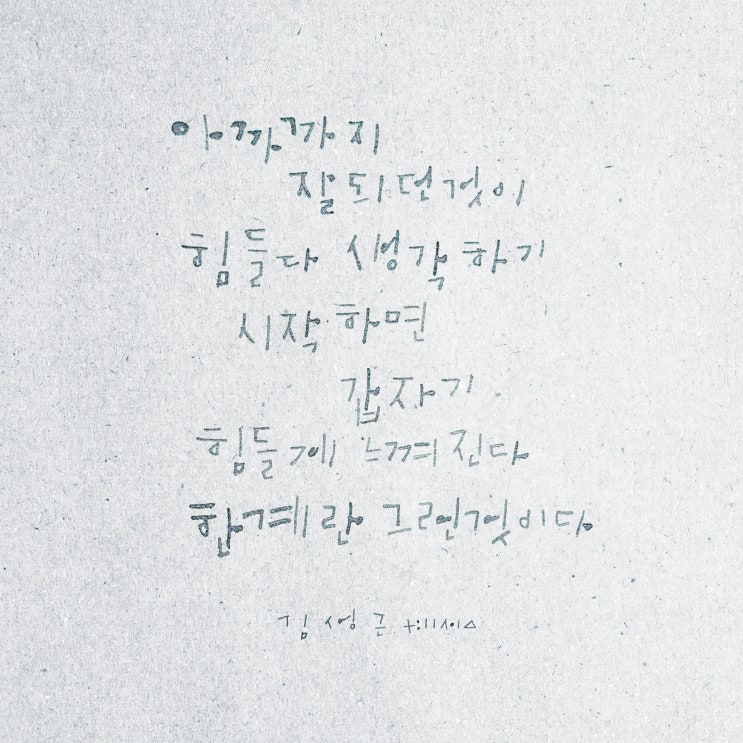 아까까지
잘되던것이
힘들다 생각하기
시작하면
갑자기
힘들게 느껴진다
한계란 그런것이다